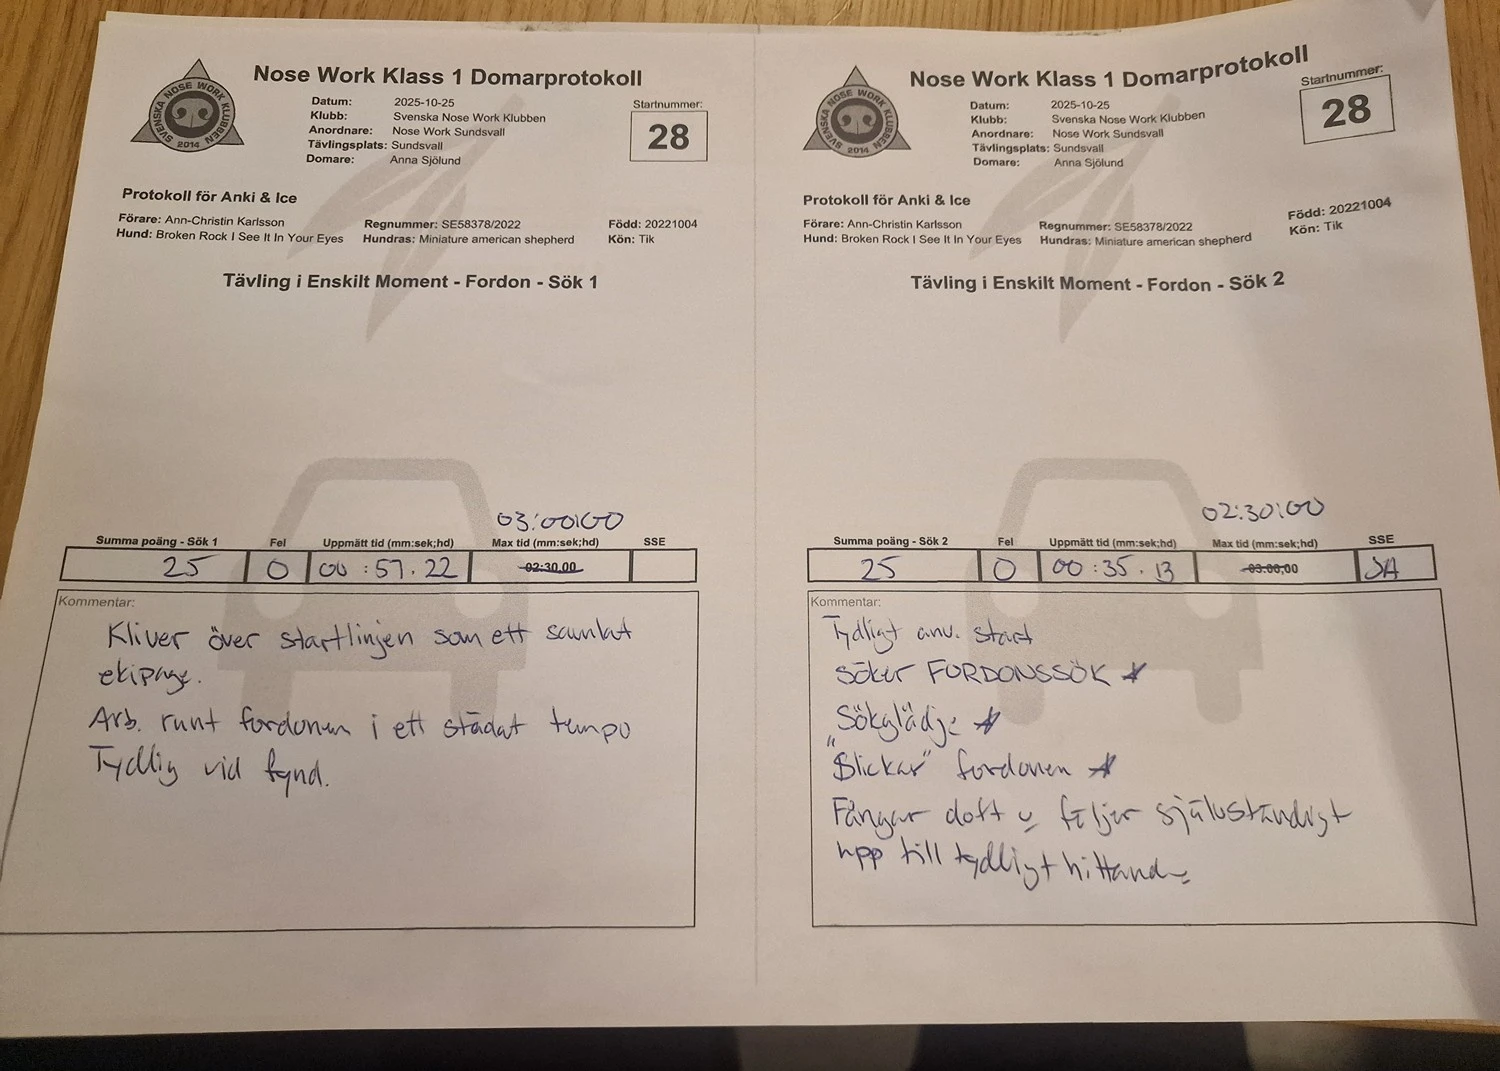 Nose Work Klass 1 Domarprotokoll
SVENSKA NOSE WORK KLUBBEN
2014
Datum: 2025-10-25
Klubb: Svenska Nose Work Klubben
Anordnare: Nose Work Sundsvall
Tävlingsplats: Sundsvall
Domare: Anna Sjölund
Startnummer:
28
Protokoll för Anki & Ice
Förare: Ann-Christin Karlsson Regnummer: SE58378/2022 Född: 20221004
Hund: Broken Rock I See It In Your Eyes Hundras: Miniature american shepherd Kön: Tik
Tävling i Enskilt Moment - Fordon - Sök 1
03:00:00
Summa poäng - Sök 1 Fel Uppmätt tid (mm:sek;hd) Max tid (mm:sek;hd) SSE
25 0 00:57.22 02:30,00
Kommentar:
Kliver över startlinjen som ett samlat
ekipage.
Arb. runt fordonen i ett städat tempo
Tydlig vid fynd.
Nose Work Klass 1 Domarprotokoll
SVENSKA NOSE WORK KLUBBEN
2014
Datum: 2025-10-25
Klubb: Svenska Nose Work Klubben
Anordnare: Nose Work Sundsvall
Tävlingsplats: Sundsvall
Domare: Anna Sjölund
Startnummer:
28
Protokoll för Anki & Ice
Förare: Ann-Christin Karlsson Regnummer: SE58378/2022 Född: 20221004
Hund: Broken Rock I See It In Your Eyes Hundras: Miniature american shepherd Kön: Tik
Tävling i Enskilt Moment - Fordon - Sök 2
02:30:00
Summa poäng - Sök 2 Fel Uppmätt tid (mm:sek;hd) Max tid (mm:sek;hd) SSE
25 0 00:35.13 03:00,00 JA
Kommentar:
Tydligt anv. start
söker FORDONSSÖK ★
Sökglädje ★
"Slickar" fordonen ★
Fångar doft & följer självständigt
upp till tydligt hittande